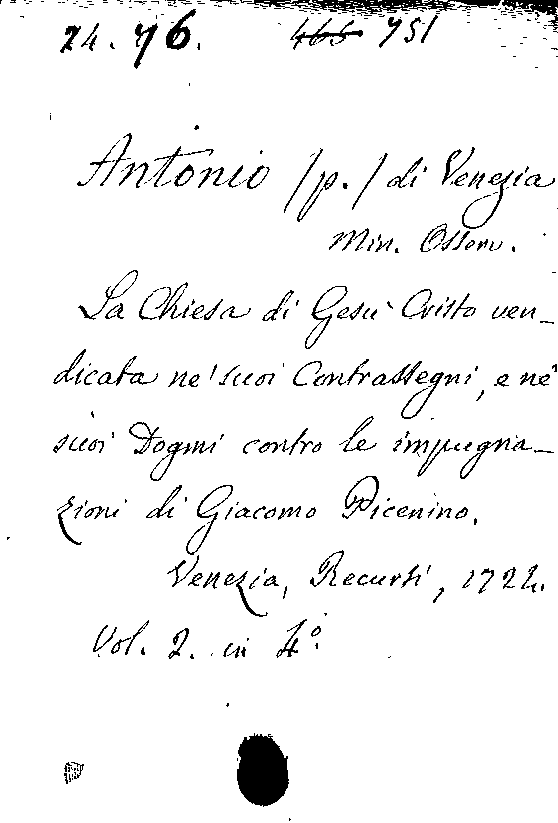 24. 76. 466 751
Antonio /p./ di Venezia
Min. Osserv.
La Chiesa di Gesù Cristo ven-
dicata ne' suoi Contrassegni, e ne'
suoi Dogmi contro le impugna-
zioni di Giacomo Picenino.
Venezia, Recurti, 1724.
Vol. 2. in 4°.